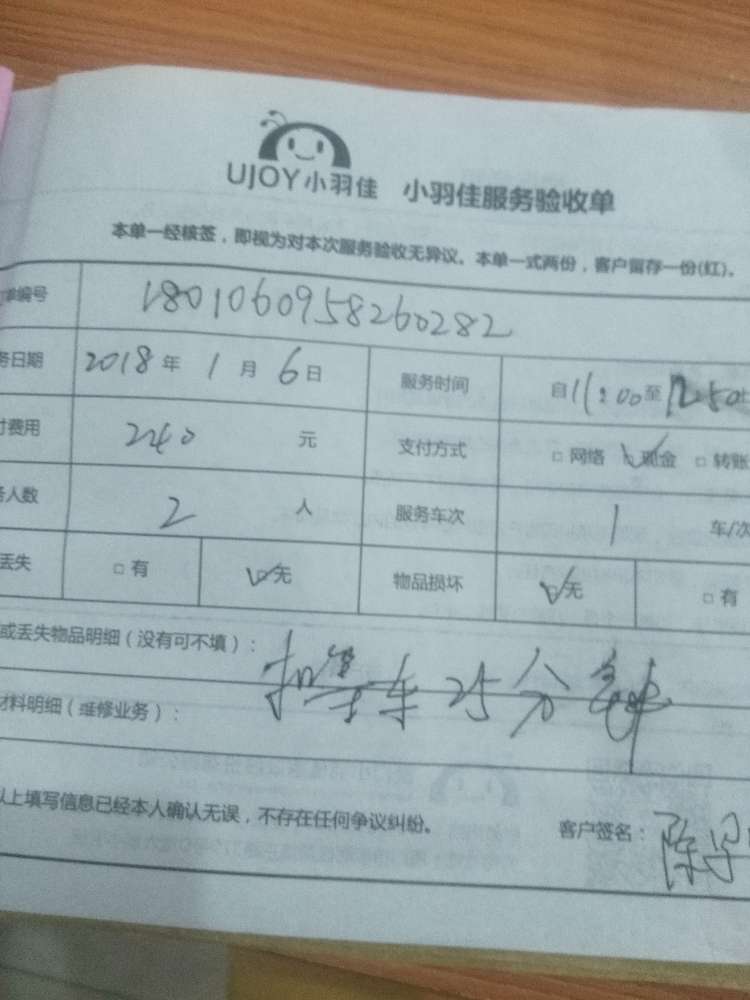 UJOY小羽佳 小羽佳服务验收单
本单一经核签，即视为对本次服务验收无异议。本单一式两份，客户留存一份(红)。
单编号 1801060958260282
务日期 2018年1月6日 服务时间 自11:00至12:50
付费用 240元 支付方式 □网络 ☑现金 □转账
务人数 2人 服务车次 1 车/次
丢失 □有 ☑无 物品损坏 ☑无 □有
或丢失物品明细（没有可不填）：
车25分钟
材料明细（维修业务）：
以上填写信息已经本人确认无误，不存在任何争议纠纷。 客户签名： 陈